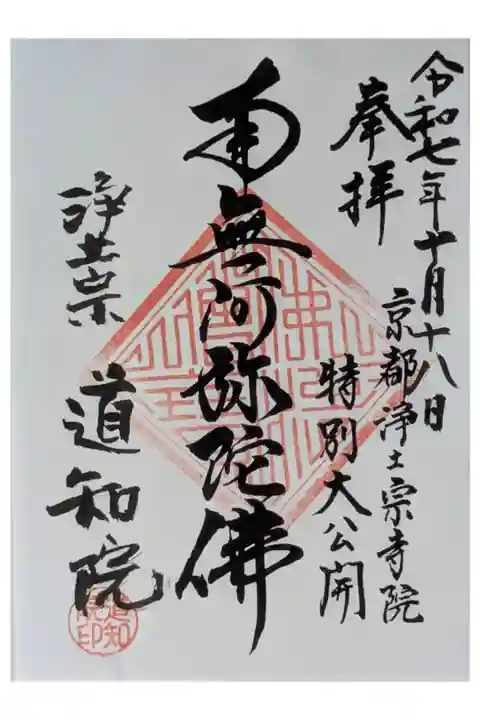 令和七年十月十八日
奉拝
京都浄土宗寺院
特別大公開
南無阿弥陀佛
浄土宗
道知院
道知院印